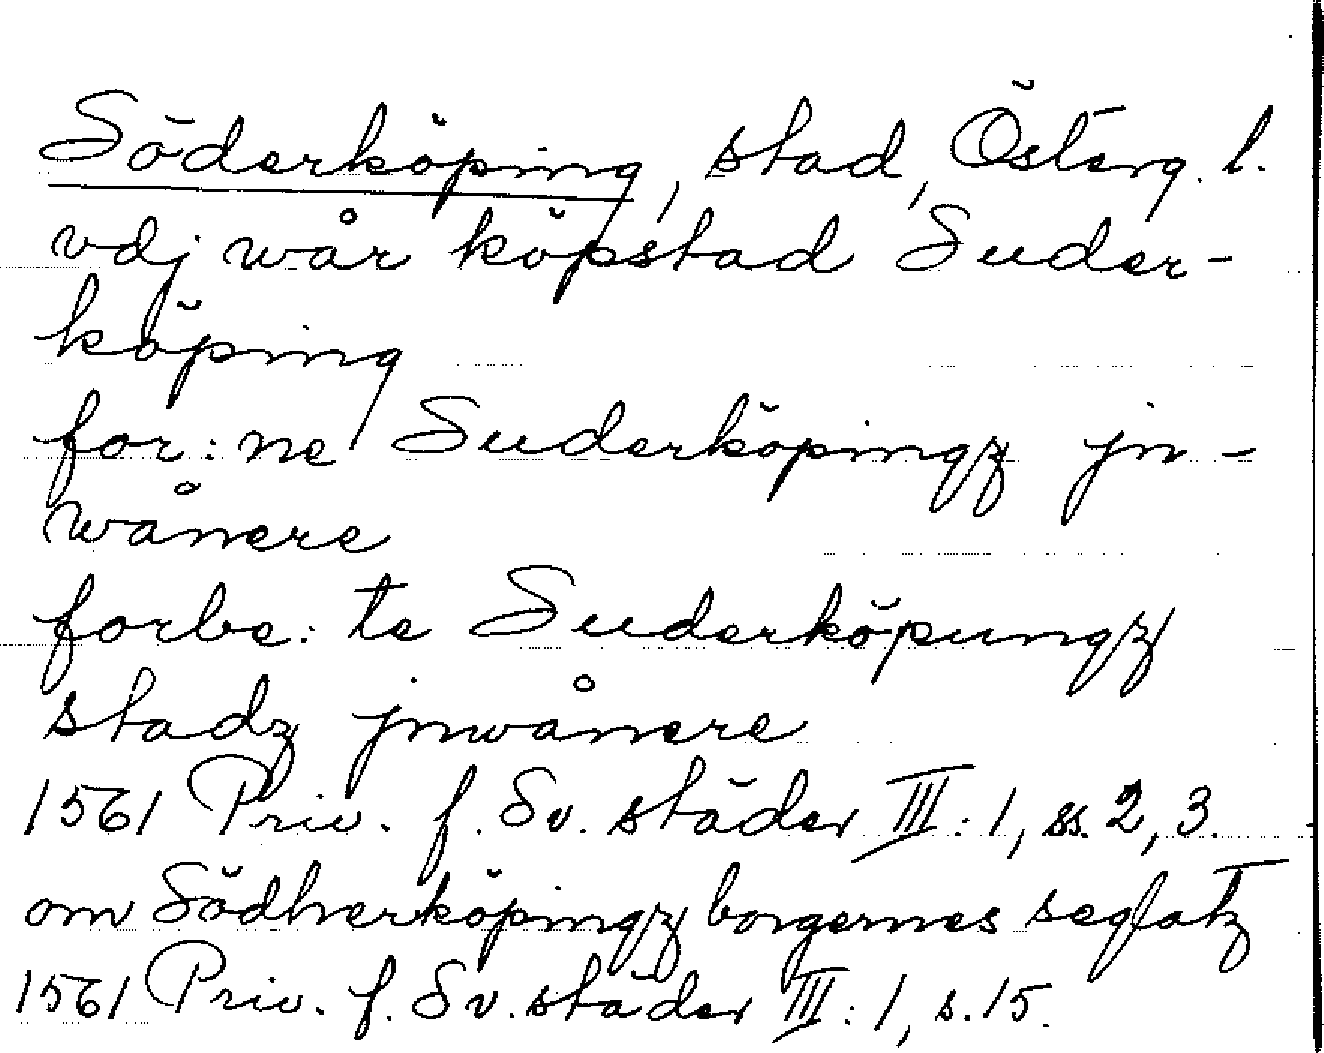 Söderköping, stad, Österg. l.
vdj wår köpstad Suder-
köping
for:ne Suderköpingz jn-
wånere
forbe:te Suderköpungz
stadz jnwånere
1561 Priv. f. Sv. städer III:1, ss. 2, 3.
om Södherköpingz borgernes seglatz
1561 Priv. f. Sv. städer III:1, s. 15.